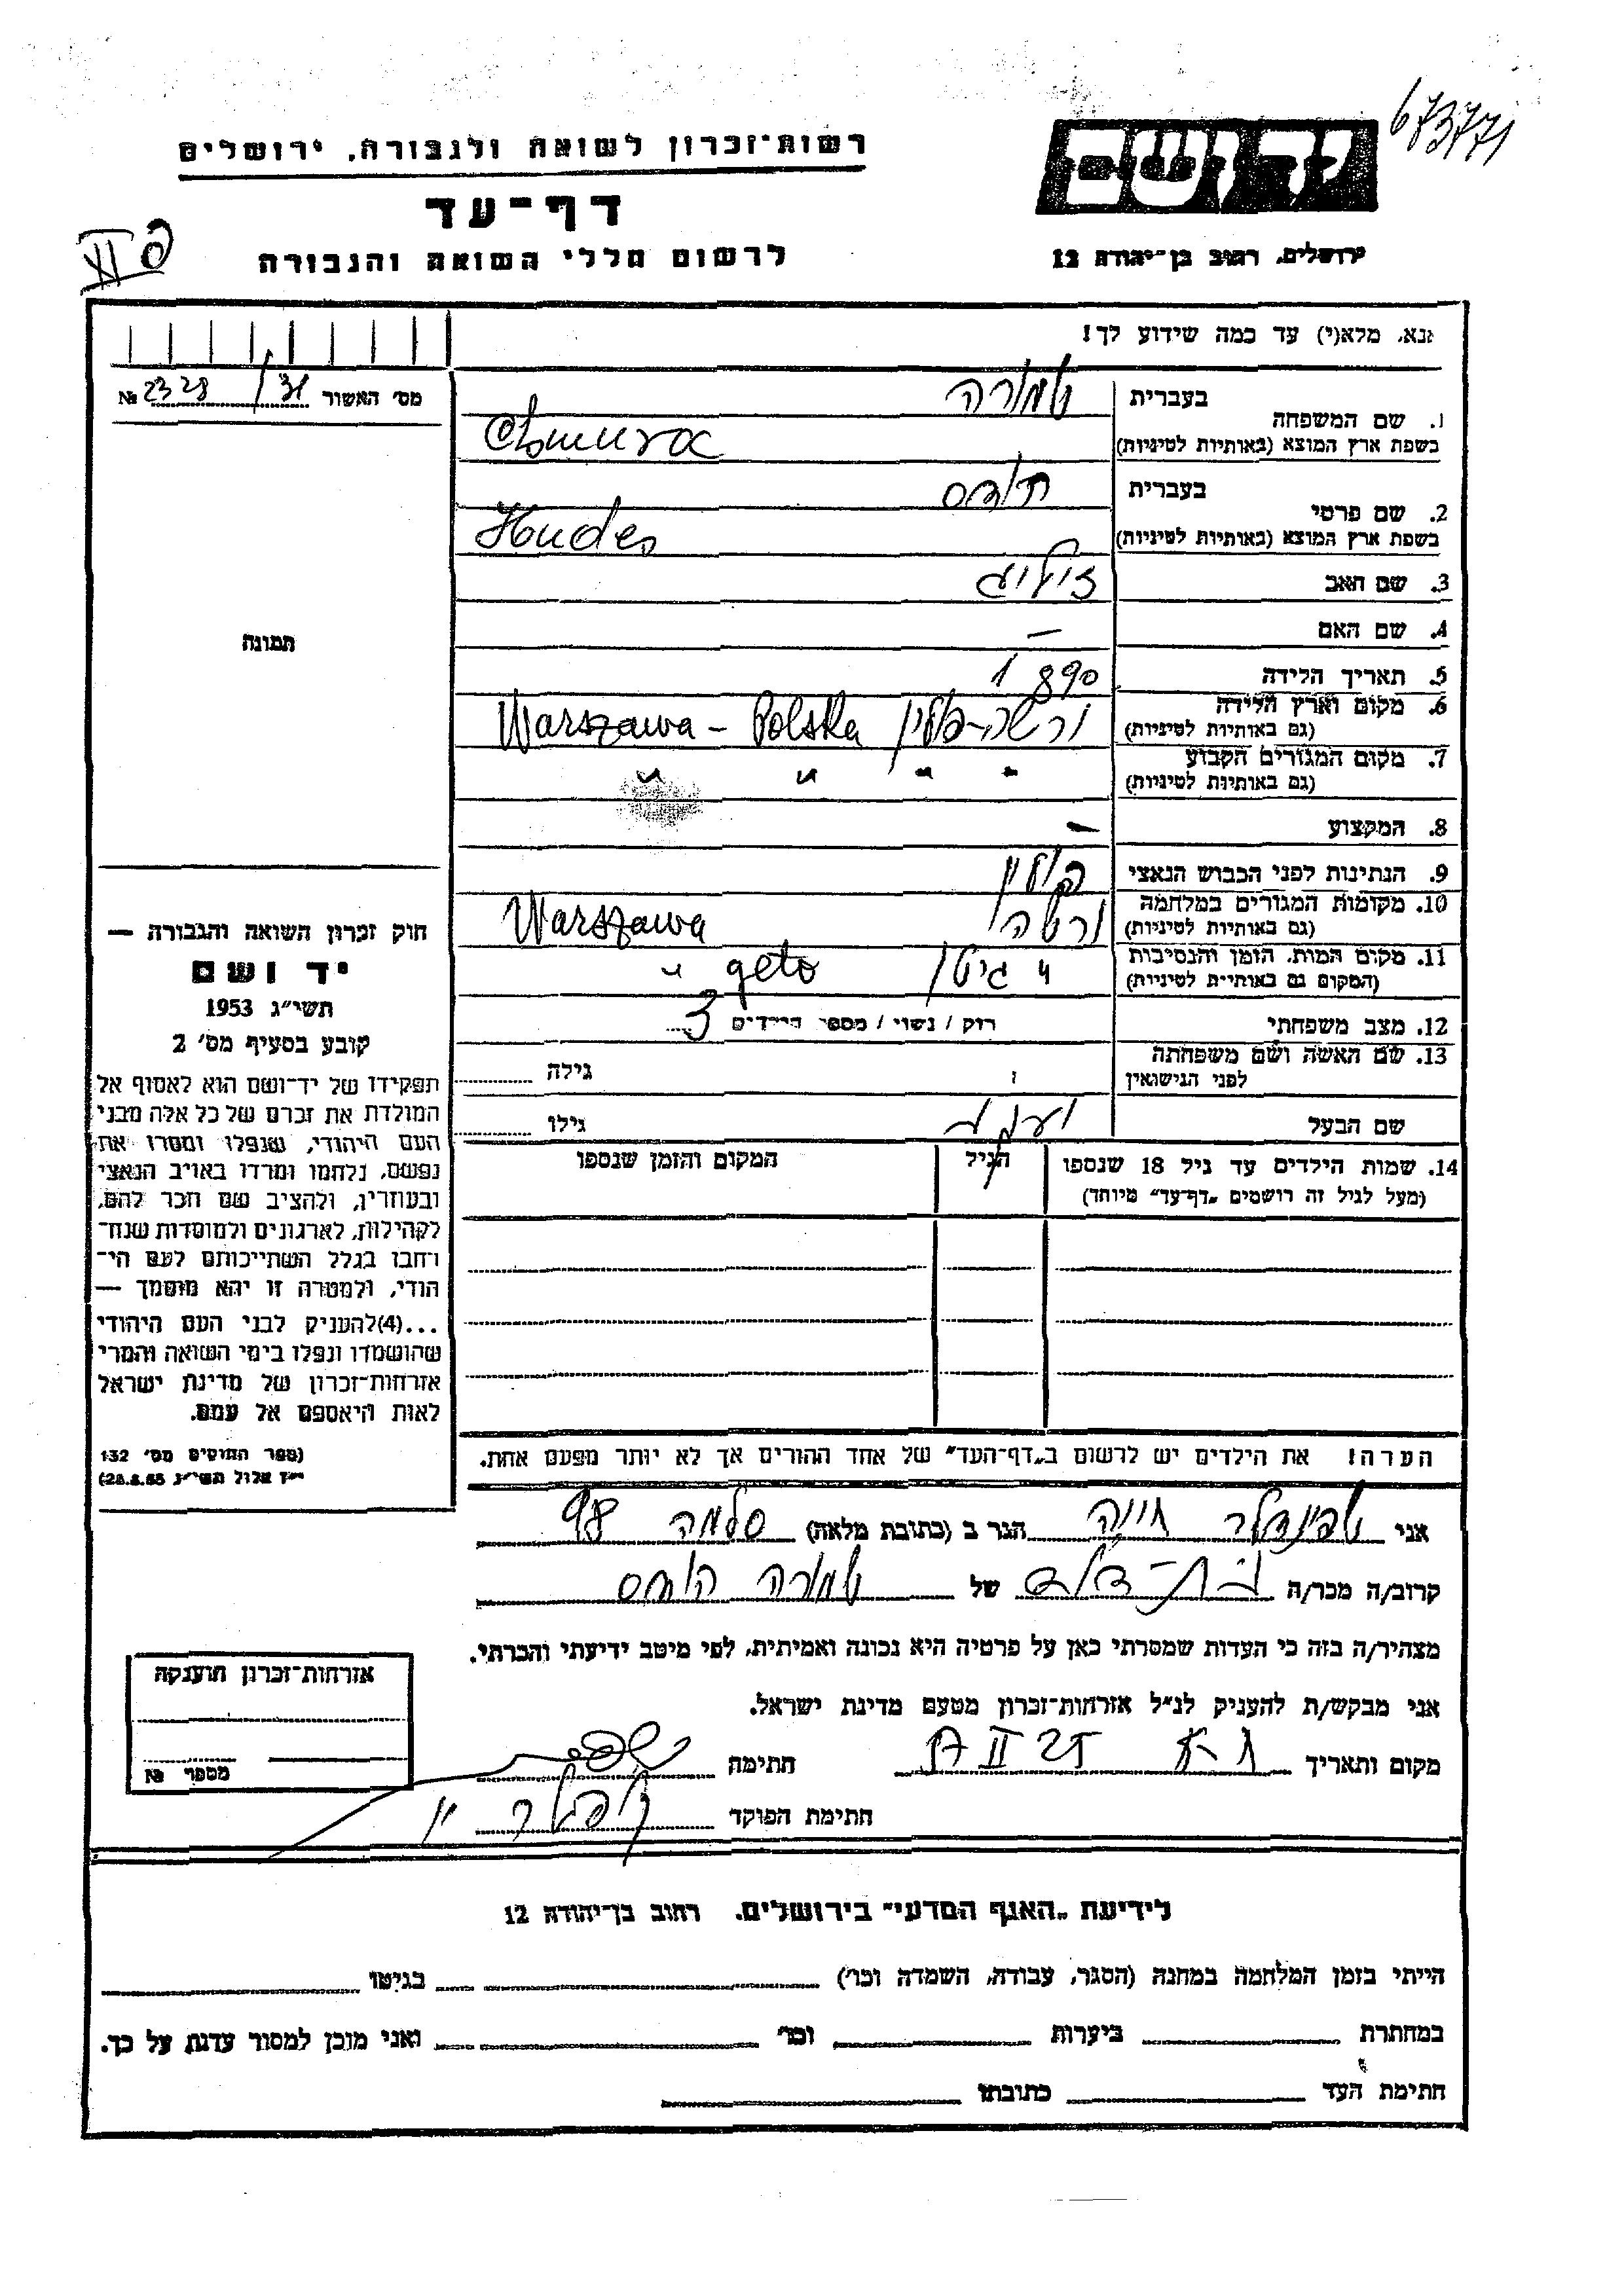 673771
רשות־זכרון לשואה ולגבורה, ירושלים
יד ושם
דף־עד
לרשום חללי השואה והגבורה
ירושלים, רחוב בן־יהודה 12
נא, מלא(י) עד כמה שידוע לך!
מס' האשור 31/ 2328 №
תמונה
1. שם המשפחה
בעברית
בשפת ארץ המוצא (באותיות לטיניות) Chmura
2. שם פרטי
בעברית
בשפת ארץ המוצא (באותיות לטיניות) Hudes
3. שם האב זליג
4. שם האם —
5. תאריך הלידה 1890
6. מקום וארץ הלידה ורשה-פולין Warszawa – Polska
(גם באותיות לטיניות)
7. מקום המגורים הקבוע " " " "
(גם באותיות לטיניות)
8. המקצוע —
9. הנתינות לפני הכבוש הנאצי פולין
10. מקומות המגורים במלחמה ורשה Warszawa
(גם באותיות לטיניות)
11. מקום המות, הזמן והנסיבות " גיטו geto "
(המקום גם באותיות לטיניות)
12. מצב משפחתי רוק / נשוי / מספר הילדים 3
13. שם האשה ושם משפחתה
לפני הנישואין
גילה
שם הבעל
גילו
14. שמות הילדים עד גיל 18 שנספו
(מעל לגיל זה רושמים „דף־עד" מיוחד)
הגיל
המקום והזמן שנספו
הערה! את הילדים יש לרשום ב„דף־העד" של אחד ההורים אך לא יותר מפעם אחת.
חוק זכרון השואה והגבורה —
יד ושם
תשי"ג 1953
קובע בסעיף מס' 2
תפקידו של יד־ושם הוא לאסוף אל
המולדת את זכרם של כל אלה מבני
העם היהודי, שנפלו ומסרו את
נפשם, נלחמו ומרדו באויב הנאצי
ובעוזריו, ולהציב שם וזכר להם,
לקהילות, לארגונים ולמוסדות שנח־
רבו בגלל השתייכותם לעם הי־
הודי, ולמטרה זו יהא מוסמך —
...(4)להעניק לבני העם היהודי
שהושמדו ונפלו בימי השואה והמרי
אזרחות־זכרון של מדינת ישראל
לאות היאספם אל עמם.
(ספר החוקים מס' 132
אני שפינדלר חיה הגר ב (כתובת מלאה) סלמה 98
קרוב/ה מכר/ה בת-דוד של
מצהיר/ה בזה כי העדות שמסרתי כאן על פרטיה היא נכונה ואמיתית, לפי מיטב ידיעתי והכרתי.
אני מבקש/ת להעניק לנ"ל אזרחות־זכרון מטעם מדינת ישראל.
מקום ותאריך ת-א חתימה
חתימת הפוקד
אזרחות־זכרון הוענקה
מספר №
לידיעת „האגף המדעי" בירושלים, רחוב בן־יהודה 12
הייתי בזמן המלחמה במחנה (הסגר, עבודה, השמדה וכו') בגיטו
במחתרת ביערות וכו' ואני מוכן למסור עדות על כך.
חתימת העד כתובתו